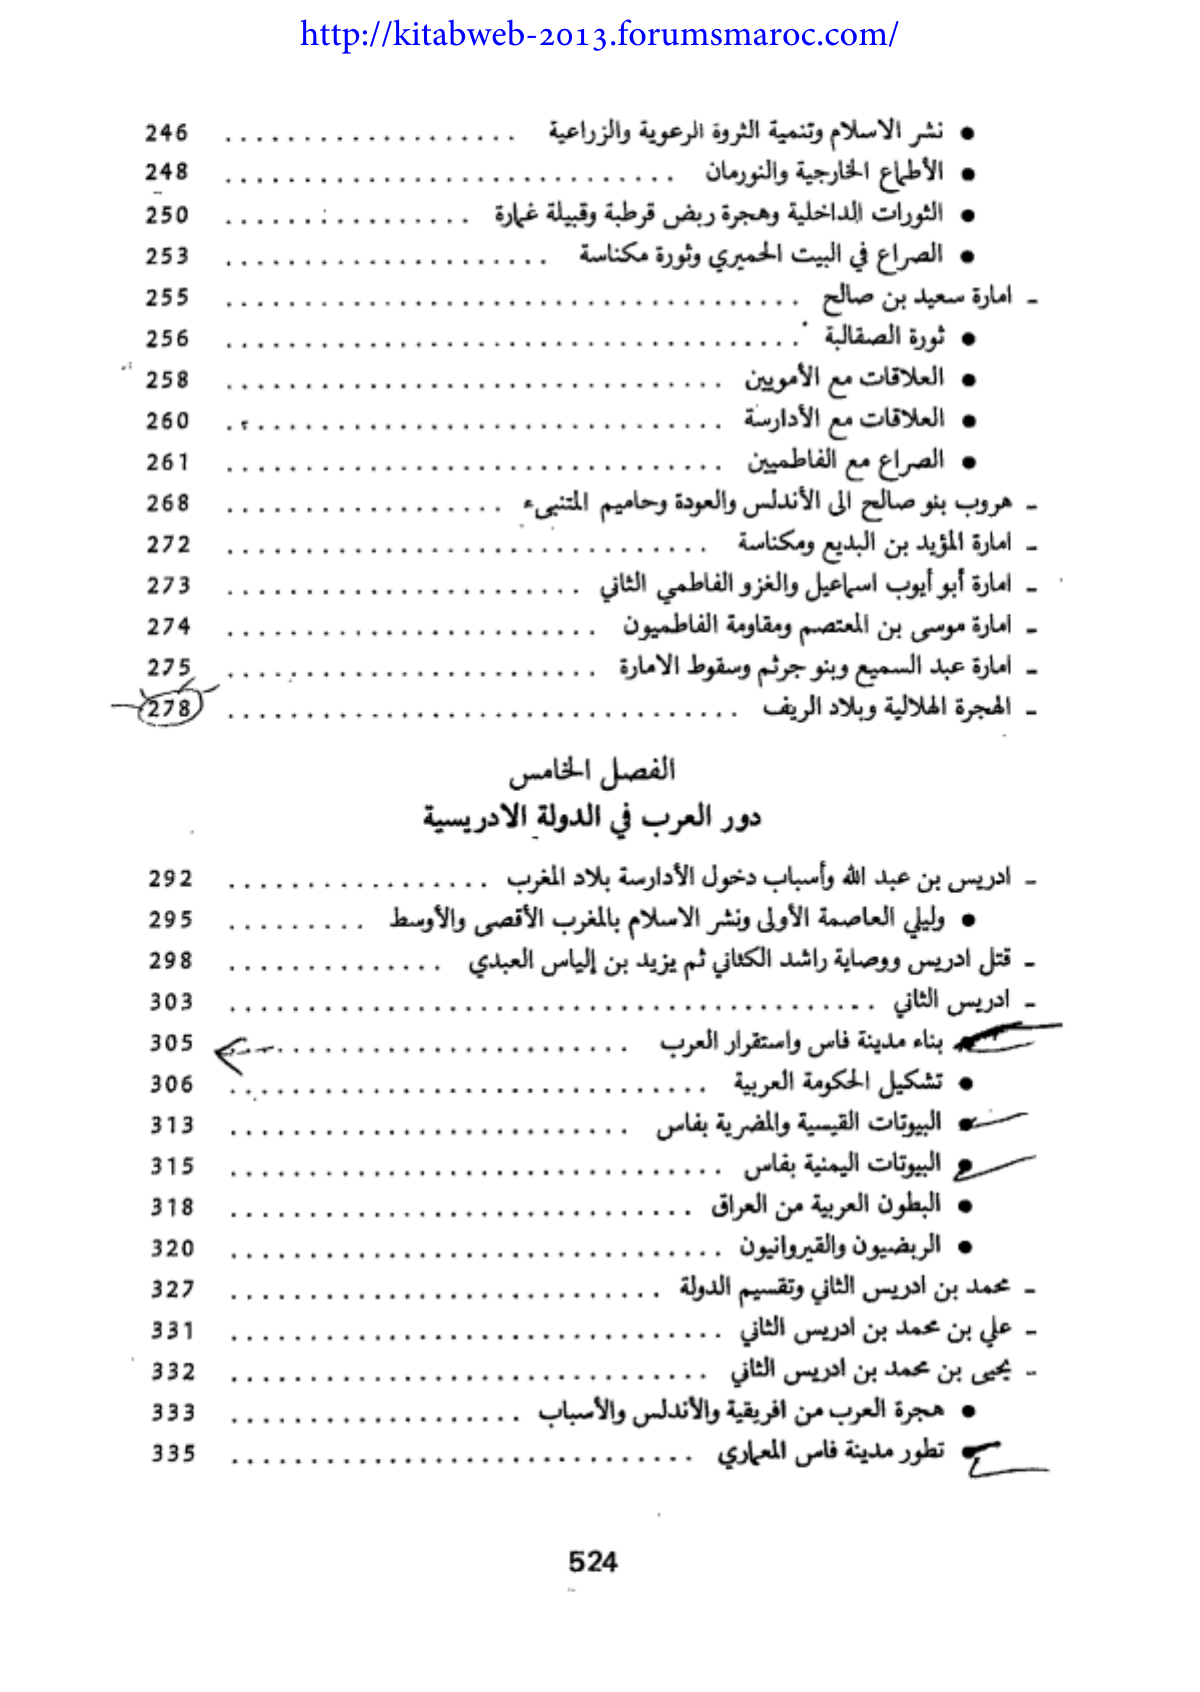 http://kitabweb-2013.forumsmaroc.com/
● نشر الاسلام وتنمية الثروة الرعوية والزراعية . . . . . . . . . . . . . . . . . . . 246
● الأطماع الخارجية والنورمان . . . . . . . . . . . . . . . . . . . . . . . . . . . . . 248
● الثورات الداخلية وهجرة ربض قرطبة وقبيلة غمارة . . . . . . . . . . . . . . . . 250
● الصراع في البيت الحميري وثورة مكناسة . . . . . . . . . . . . . . . . . . . . . 253
ـ امارة سعيد بن صالح . . . . . . . . . . . . . . . . . . . . . . . . . . . . . . . . . . . . . 255
● ثورة الصقالبة . . . . . . . . . . . . . . . . . . . . . . . . . . . . . . . . . . . . . 256
● العلاقات مع الأمويين . . . . . . . . . . . . . . . . . . . . . . . . . . . . . . . . 258
● العلاقات مع الأدارسة . . . . . . . . . . . . . . . . . . . . . . . . . . . . . . . . 260
● الصراع مع الفاطميين . . . . . . . . . . . . . . . . . . . . . . . . . . . . . . . . 261
ـ هروب بنو صالح الى الأندلس والعودة وحاميم المتنبىء . . . . . . . . . . . . . . . . . . 268
ـ امارة المؤيد بن البديع ومكناسة . . . . . . . . . . . . . . . . . . . . . . . . . . . . . . . 272
ـ امارة أبو أيوب اسماعيل والغزو الفاطمي الثاني . . . . . . . . . . . . . . . . . . . . . . . 273
ـ امارة موسى بن المعتصم ومقاومة الفاطميون . . . . . . . . . . . . . . . . . . . . . . . . 274
ـ امارة عبد السميع وبنو جرثم وسقوط الامارة . . . . . . . . . . . . . . . . . . . . . . . . 275
ـ الهجرة الهلالية وبلاد الريف . . . . . . . . . . . . . . . . . . . . . . . . . . . . . . . . . 278
الفصل الخامس
دور العرب في الدولة الادريسية
ـ ادريس بن عبد الله وأسباب دخول الأدارسة بلاد المغرب . . . . . . . . . . . . . . . . . 292
● وليلي العاصمة الأولى ونشر الاسلام بالمغرب الأقصى والأوسط . . . . . . . . . 295
ـ قتل ادريس ووصاية راشد الكثاني ثم يزيد بن إلياس العبدي . . . . . . . . . . . . . . 298
ـ ادريس الثاني . . . . . . . . . . . . . . . . . . . . . . . . . . . . . . . . . . . . . . . . . 303
● بناء مدينة فاس واستقرار العرب . . . . . . . . . . . . . . . . . . . . . . . . . . 305
● تشكيل الحكومة العربية . . . . . . . . . . . . . . . . . . . . . . . . . . . . . . . 306
● البيوتات القيسية والمضرية بفاس . . . . . . . . . . . . . . . . . . . . . . . . . . 313
● البيوتات اليمنية بفاس . . . . . . . . . . . . . . . . . . . . . . . . . . . . . . . . 315
● البطون العربية من العراق . . . . . . . . . . . . . . . . . . . . . . . . . . . . . . 318
● الربضيون والقيروانيون . . . . . . . . . . . . . . . . . . . . . . . . . . . . . . . . 320
ـ محمد بن ادريس الثاني وتقسيم الدولة . . . . . . . . . . . . . . . . . . . . . . . . . . . . 327
ـ علي بن محمد بن ادريس الثاني . . . . . . . . . . . . . . . . . . . . . . . . . . . . . . . . 331
ـ يحيى بن محمد بن ادريس الثاني . . . . . . . . . . . . . . . . . . . . . . . . . . . . . . . 332
● هجرة العرب من افريقية والأندلس والأسباب . . . . . . . . . . . . . . . . . . . 333
● تطور مدينة فاس المعماري . . . . . . . . . . . . . . . . . . . . . . . . . . . . . . 335
524